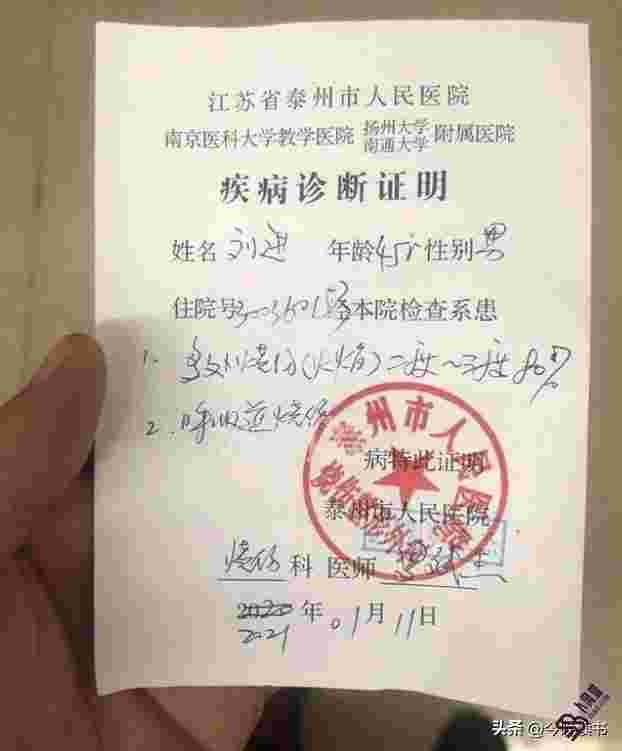 江苏省泰州市人民医院
南京医科大学教学医院 扬州大学 南通大学 附属医院
疾病诊断证明
姓名 刘进 年龄 45岁 性别 男
住院号 经本院检查系患
1. 烧伤(火焰)二度~三度 80%
2. 呼吸道烧伤
病特此证明
泰州市人民医院
烧伤 科 医师
2020 年 01月 11日
2021
泰州市人民医院
头条 @今